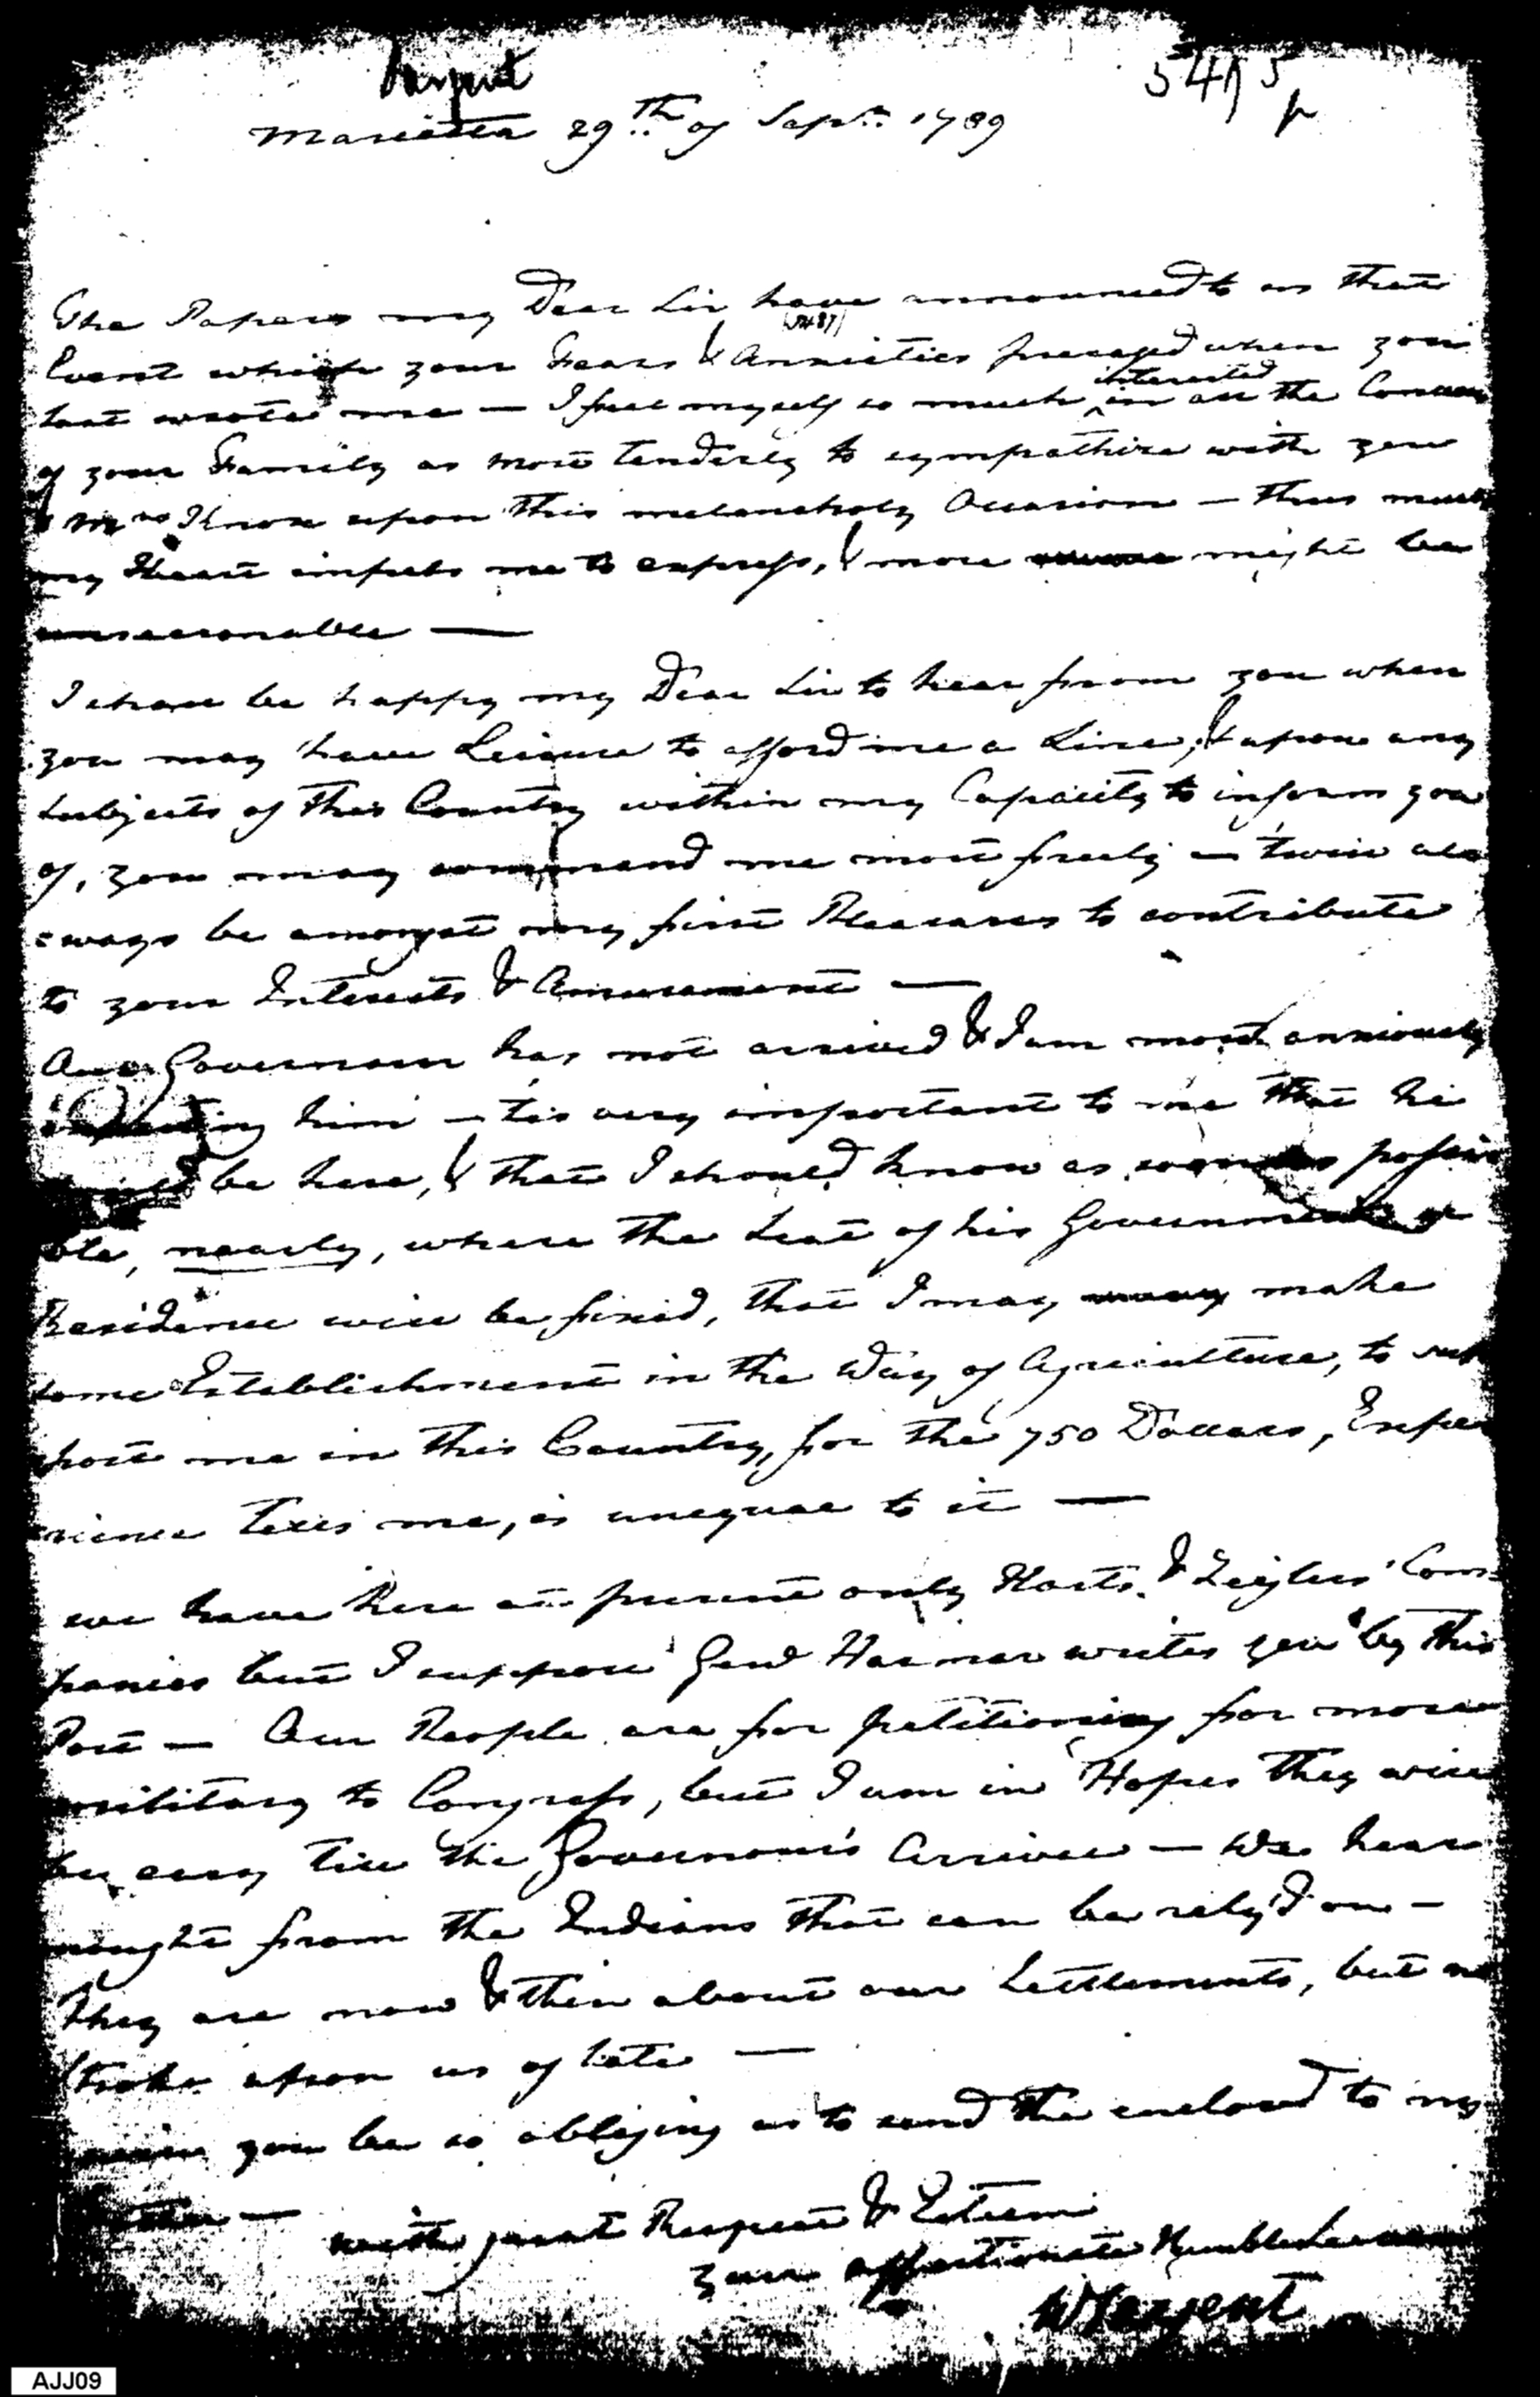 Sargent
5415
Marietta 29th of Sepr. 1789
The Papers my Dear Sir have announced to us that
Event which your Fears & Anxieties presaged when you
last wrote me — I feel myself so much interested in all the Concerns
of your Family as most tenderly to sympathize with you
& Mrs Knox upon this melancholy Occasion — thus much
my Heart impels me to express, & more might be
unseasonable —
I shall be happy my Dear Sir to hear from you when
you may have Leisure to afford me a Line, & upon any
Subjects of this Country within my Capacity to inform you
of, you may command me most freely — twill al
=ways be amongst my first Pleasures to contribute
to your Interests & Amusement —
Our Governour has not arrived & I am most anxiously
expecting him — tis very important to me that he
should be here, & that I should know as soon as possi
ble, nearly, where the Seat of his Government or
Residence will be fixed, that I may make
some Establishment in the Way of Agriculture, to sup
port me in this Country, for the 750 Dollars, Expe
rience tells me, is unequal to it —
we have here at present only Harts & Zieglers Com
panies but I suppose Genl Harmar writes you by this
Post — Our People are for petitioning for more
military to Congress, but I am in Hopes they will
be easy till the Governour's Arrival — We hear
nought from the Indians that can be rely'd on —
They are now & then about our Settlements, but no
Stroke upon us of late —
will you be so obliging as to send the enclosed to my
with great Respect & Esteem
your affectionate Humble Servant
W Sargent
AJJ09